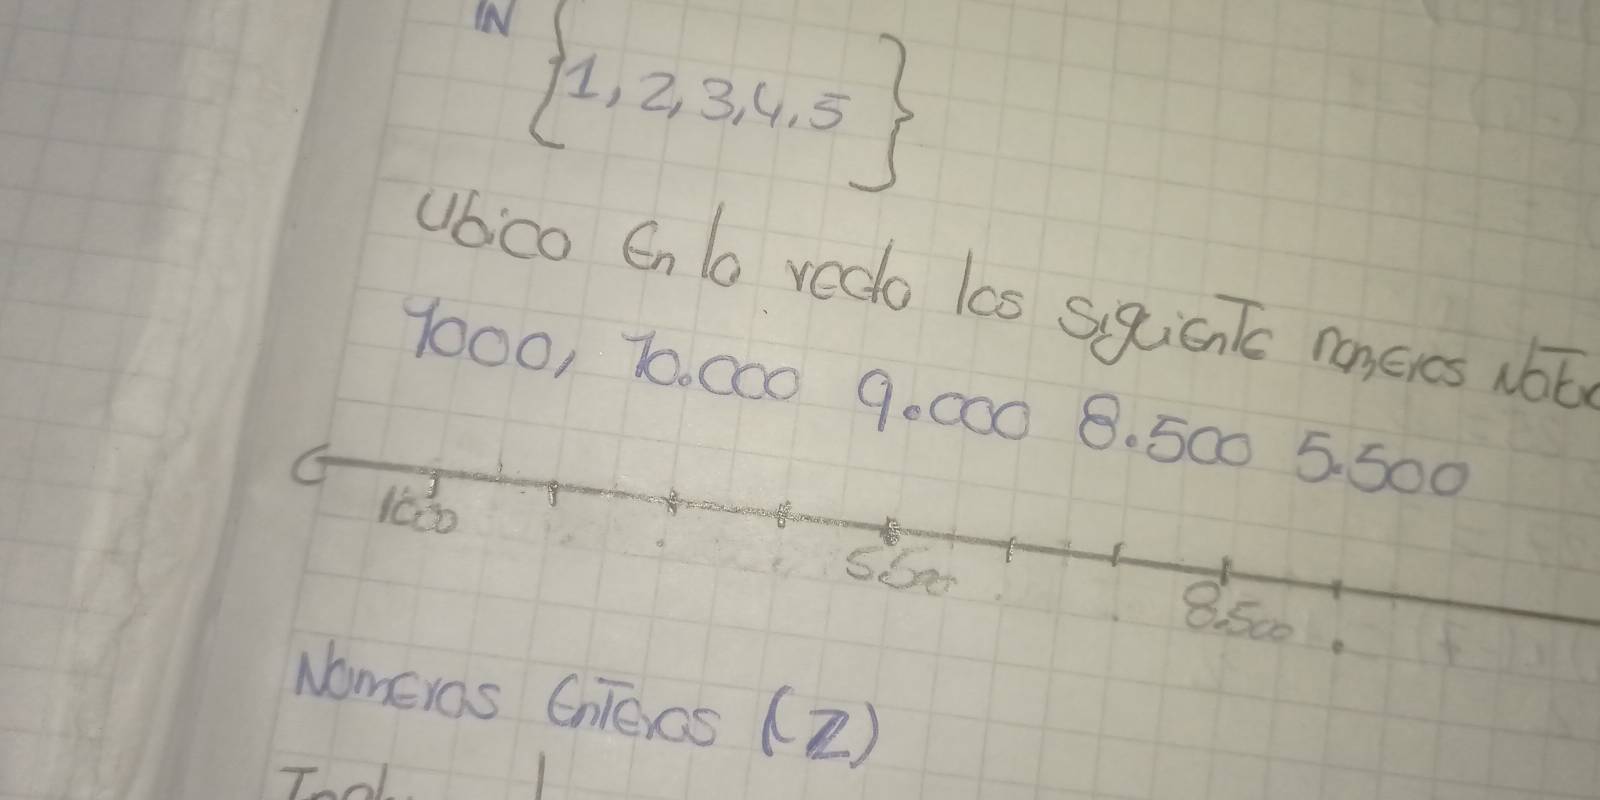 IN {1, 2, 3, 4, 5}
Ubico en la recta los siguiente nomeros
1000, 10.000 9.000 8.500 5.500
1000
5.500
8.500
Nomeros Enteros (Z)